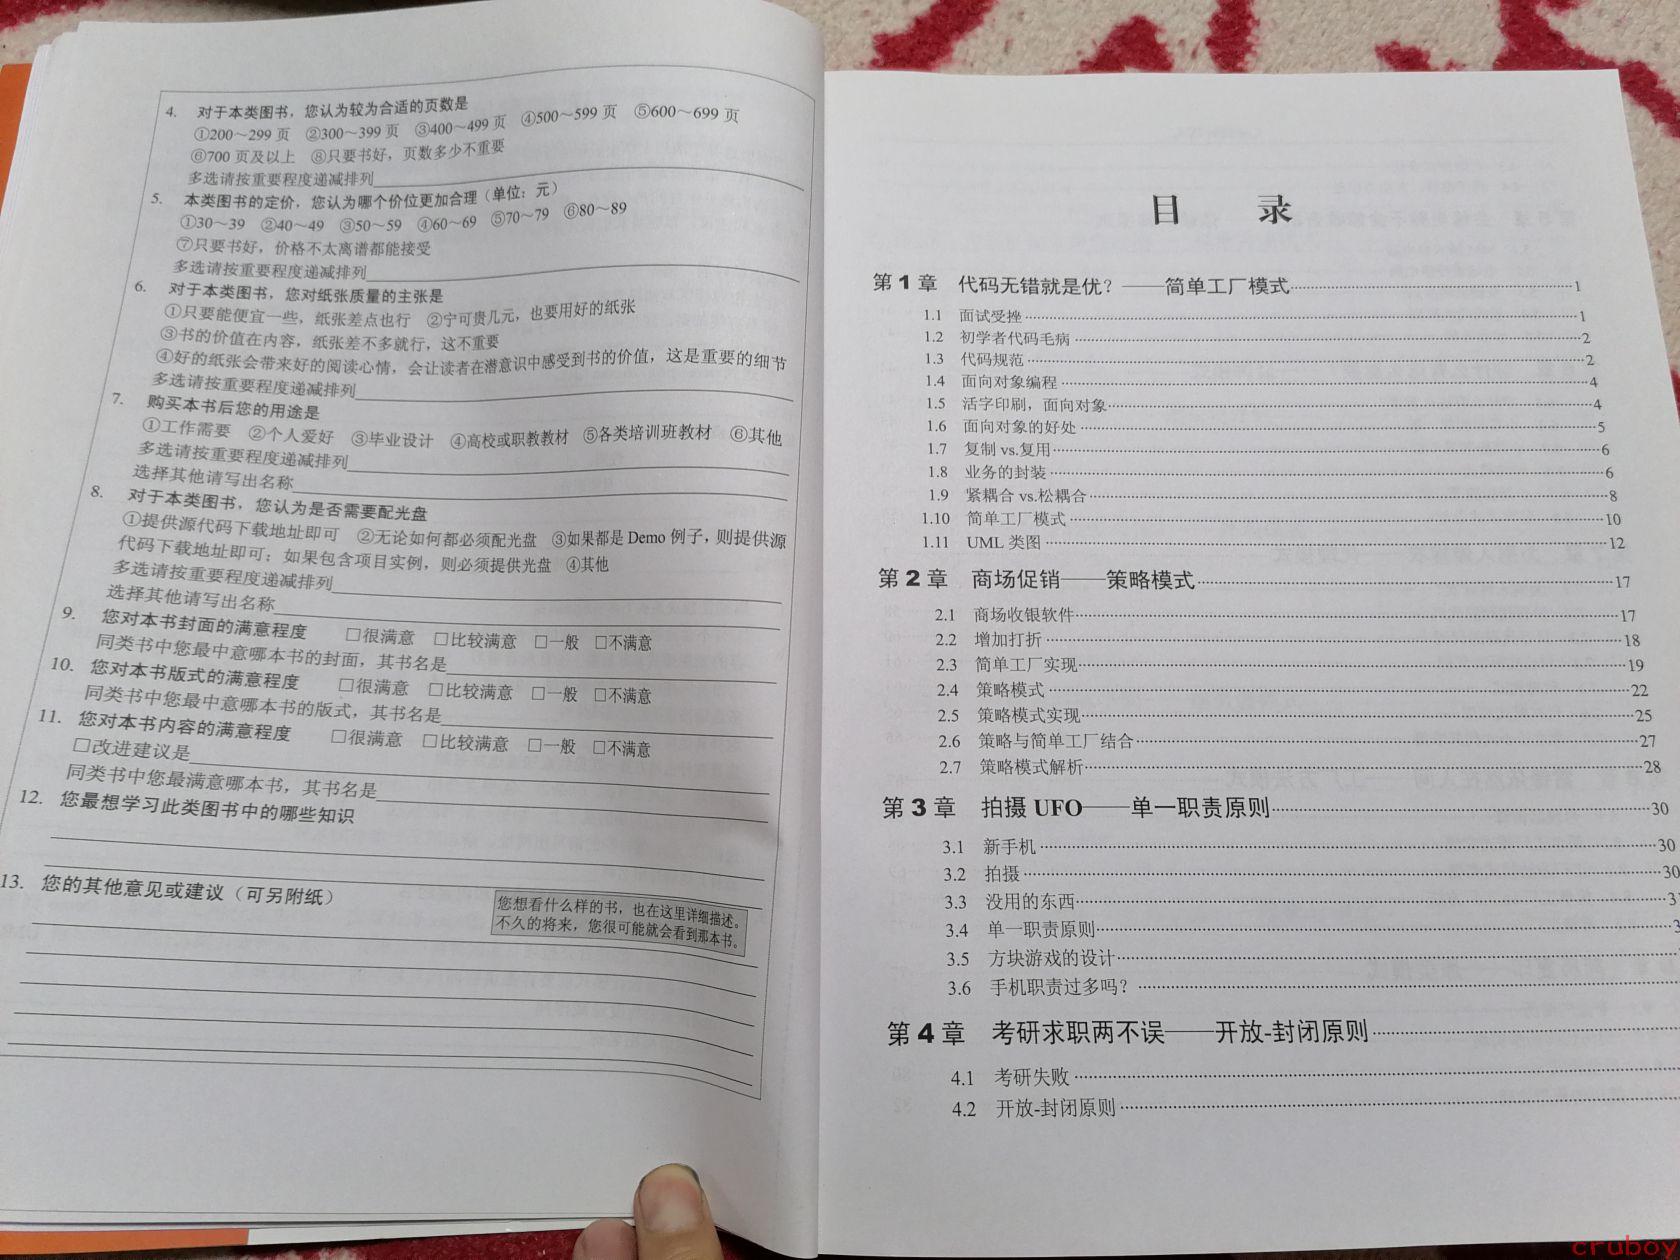 4. 对于本类图书，您认为较为合适的页数是
①200～299 页 ②300～399 页 ③400～499 页 ④500～599 页 ⑤600～699 页
⑥700 页及以上 ⑧只要书好，页数多少不重要
多选请按重要程度递减排列
5. 本类图书的定价，您认为哪个价位更加合理（单位：元）
①30～39 ②40～49 ③50～59 ④60～69 ⑤70～79 ⑥80～89
⑦只要书好，价格不太离谱都能接受
多选请按重要程度递减排列
6. 对于本类图书，您对纸张质量的主张是
①只要能便宜一些，纸张差点也行 ②宁可贵几元，也要用好的纸张
③书的价值在内容，纸张差不多就行，这不重要
④好的纸张会带来好的阅读心情，会让读者在潜意识中感受到书的价值，这是重要的细节
多选请按重要程度递减排列
7. 购买本书后您的用途是
①工作需要 ②个人爱好 ③毕业设计 ④高校或职教教材 ⑤各类培训班教材 ⑥其他
多选请按重要程度递减排列
选择其他请写出名称
8. 对于本类图书，您认为是否需要配光盘
①提供源代码下载地址即可 ②无论如何都必须配光盘 ③如果都是 Demo 例子，则提供源
代码下载地址即可；如果包含项目实例，则必须提供光盘 ④其他
多选请按重要程度递减排列
选择其他请写出名称
9. 您对本书封面的满意程度 □很满意 □比较满意 □一般 □不满意
同类书中您最中意哪本书的封面，其书名是
10. 您对本书版式的满意程度 □很满意 □比较满意 □一般 □不满意
同类书中您最中意哪本书的版式，其书名是
11. 您对本书内容的满意程度 □很满意 □比较满意 □一般 □不满意
□改进建议是
同类书中您最满意哪本书，其书名是
12. 您最想学习此类图书中的哪些知识
13. 您的其他意见或建议（可另附纸）
您想看什么样的书，也在这里详细描述。
不久的将来，您很可能就会看到那本书。
目 录
第 1 章 代码无错就是优？——简单工厂模式 1
1.1 面试受挫 1
1.2 初学者代码毛病 2
1.3 代码规范 2
1.4 面向对象编程 4
1.5 活字印刷，面向对象 4
1.6 面向对象的好处 5
1.7 复制 vs.复用 6
1.8 业务的封装 6
1.9 紧耦合 vs.松耦合 8
1.10 简单工厂模式 10
1.11 UML 类图 12
第 2 章 商场促销——策略模式 17
2.1 商场收银软件 17
2.2 增加打折 18
2.3 简单工厂实现 19
2.4 策略模式 22
2.5 策略模式实现 25
2.6 策略与简单工厂结合 27
2.7 策略模式解析 28
第 3 章 拍摄 UFO——单一职责原则 30
3.1 新手机 30
3.2 拍摄 30
3.3 没用的东西
3.4 单一职责原则
3.5 方块游戏的设计
3.6 手机职责过多吗？
第 4 章 考研求职两不误——开放-封闭原则
4.1 考研失败
4.2 开放-封闭原则
cruboy